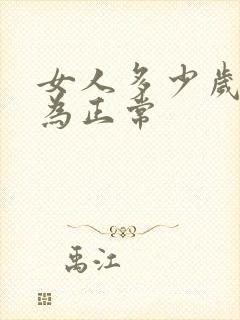 女人多少歲
為正常
禹江